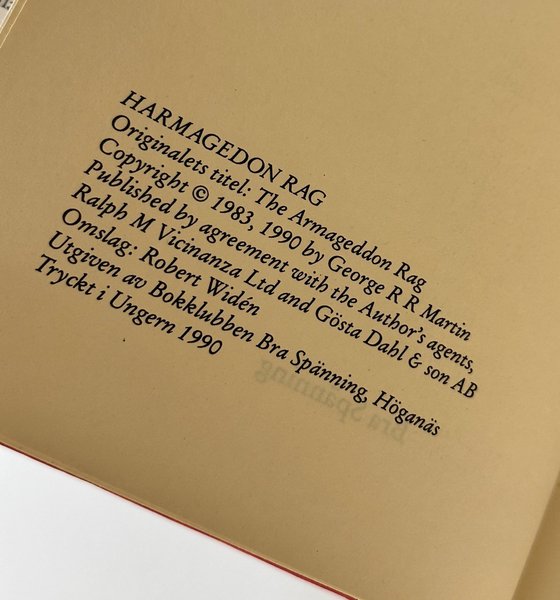 HARMAGEDON RAG
Originalets titel: The Armageddon Rag
Copyright © 1983, 1990 by George R R Martin
Published by agreement with the Author's agents,
Ralph M Vicinanza Ltd and Gösta Dahl & son AB
Omslag: Robert Widén
Utgiven av Bokklubben Bra Spänning, Höganäs
Tryckt i Ungern 1990
Bra Spänning